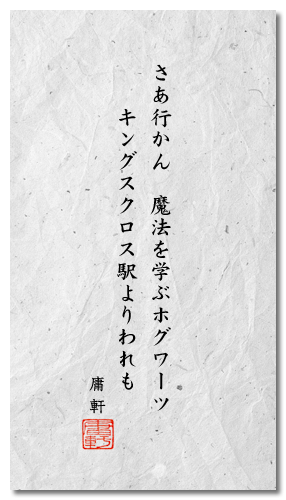 さあ行かん　魔法を学ぶホグワーツ
キングスクロス駅よりわれも
庸軒
庸軒